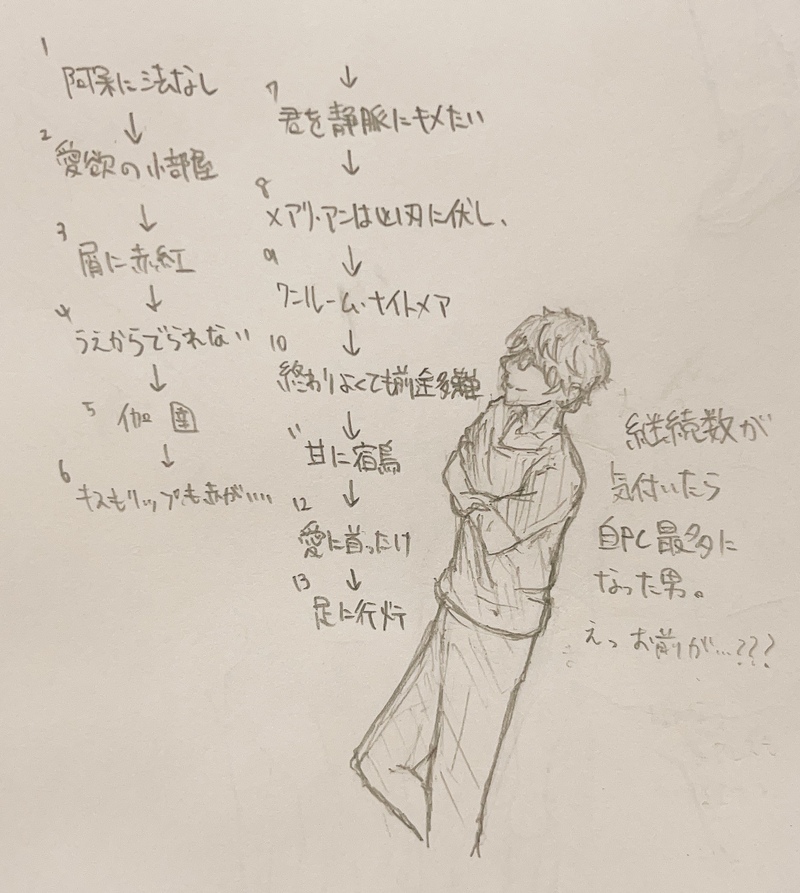 1
阿呆に法なし
↓
2
愛欲の小部屋
↓
3
屑に赤紅
↓
4
うえからでられない
↓
5 伽
↓
6
キスもリップも赤がいい
↓
7
君を静脈にキメたい
↓
8
メアリ・アンは凶刃に伏し、
↓
9
ワンルーム・ナイトメア
↓
10
終わりよくても前途多難
↓
11
甘に宿鳥
↓
12
愛に首ったけ
↓
13
足に行灯
継続数が
気付いたら
自PC最多に
なった男。
えっ お前が…???